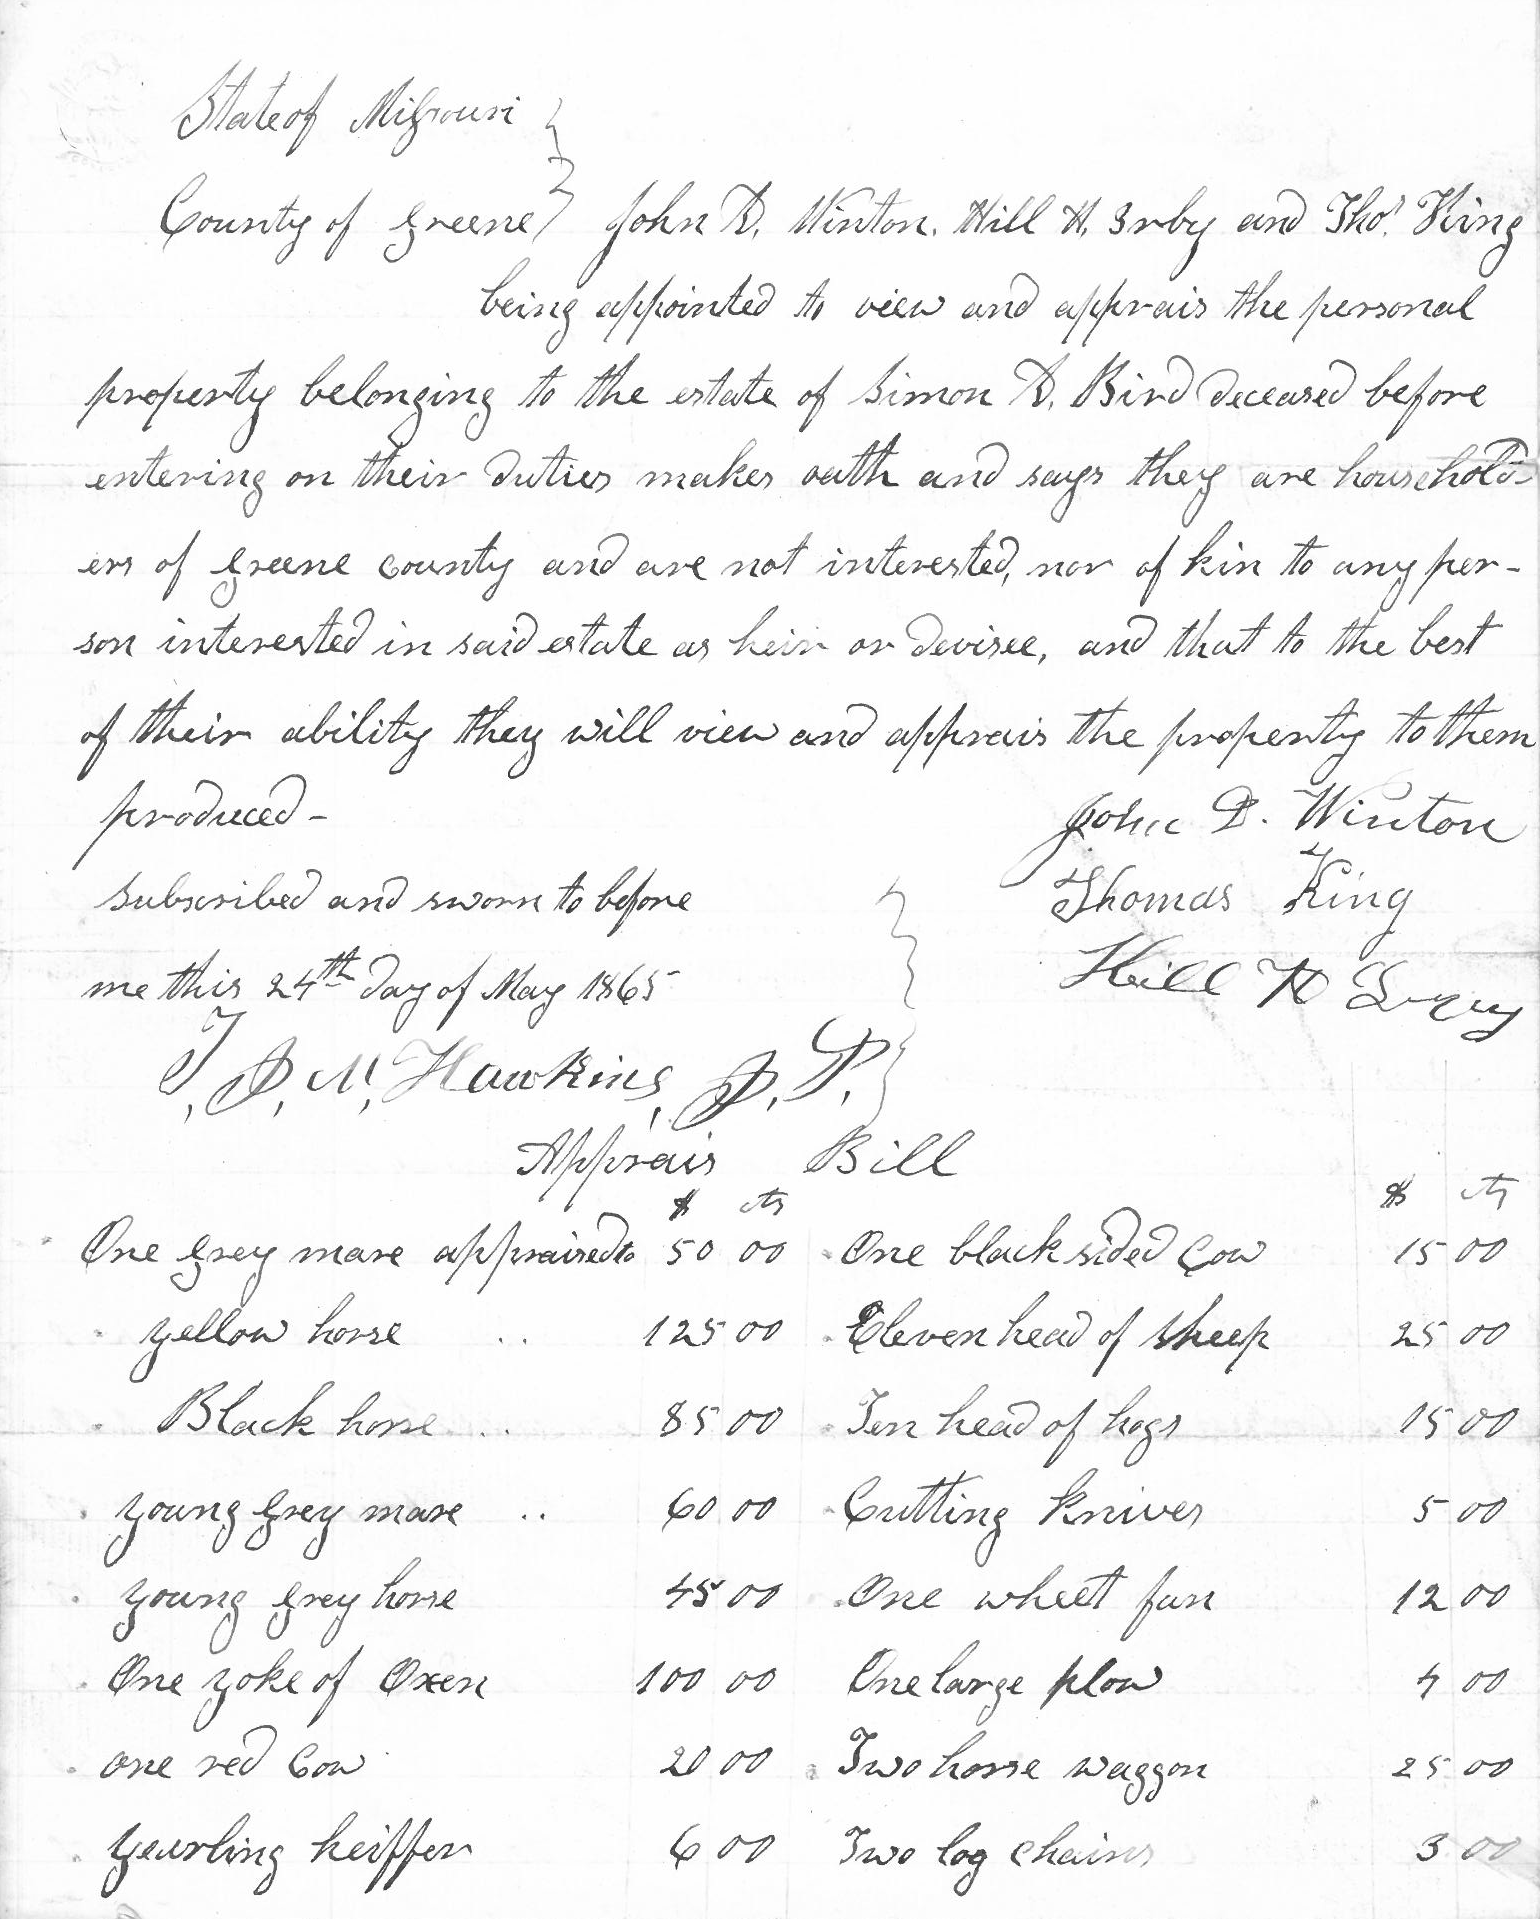 State of Missouri
County of Greene John D. Winton. Hill H. Irby and Thos. King
being appointed to view and apprais the personal
property belonging to the estate of Simon D. Bird deceased before
entering on their duties makes oath and says they are household-
ers of Greene county and are not interested, nor of kin to any per-
son interested in said estate as heir or devisee, and that to the best
of their ability they will view and apprais the property to them
produced-
John D. Winton
Subscribed and sworn to before
Thomas King
me this 24th day of May 1865
Hill H
T, J, M, Hawkins, J. P.
Apprais Bill
$ cts $ cts
One grey mare appraised to 50 00 One black sided Cow 15 00
yellow horse .. 125 00 Eleven head of sheep 25 00
Black horse .. 85 00 Ten head of hogs 15 00
young grey mare .. 60 00 Cutting knives 5 00
young grey horse 45 00 One wheet fan 12 00
One yoke of Oxen 100 00 One large plow 4 00
one red Cow 20 00 Two horse waggon 25 00
yearling heiffer 6 00 Two log chains 3 00